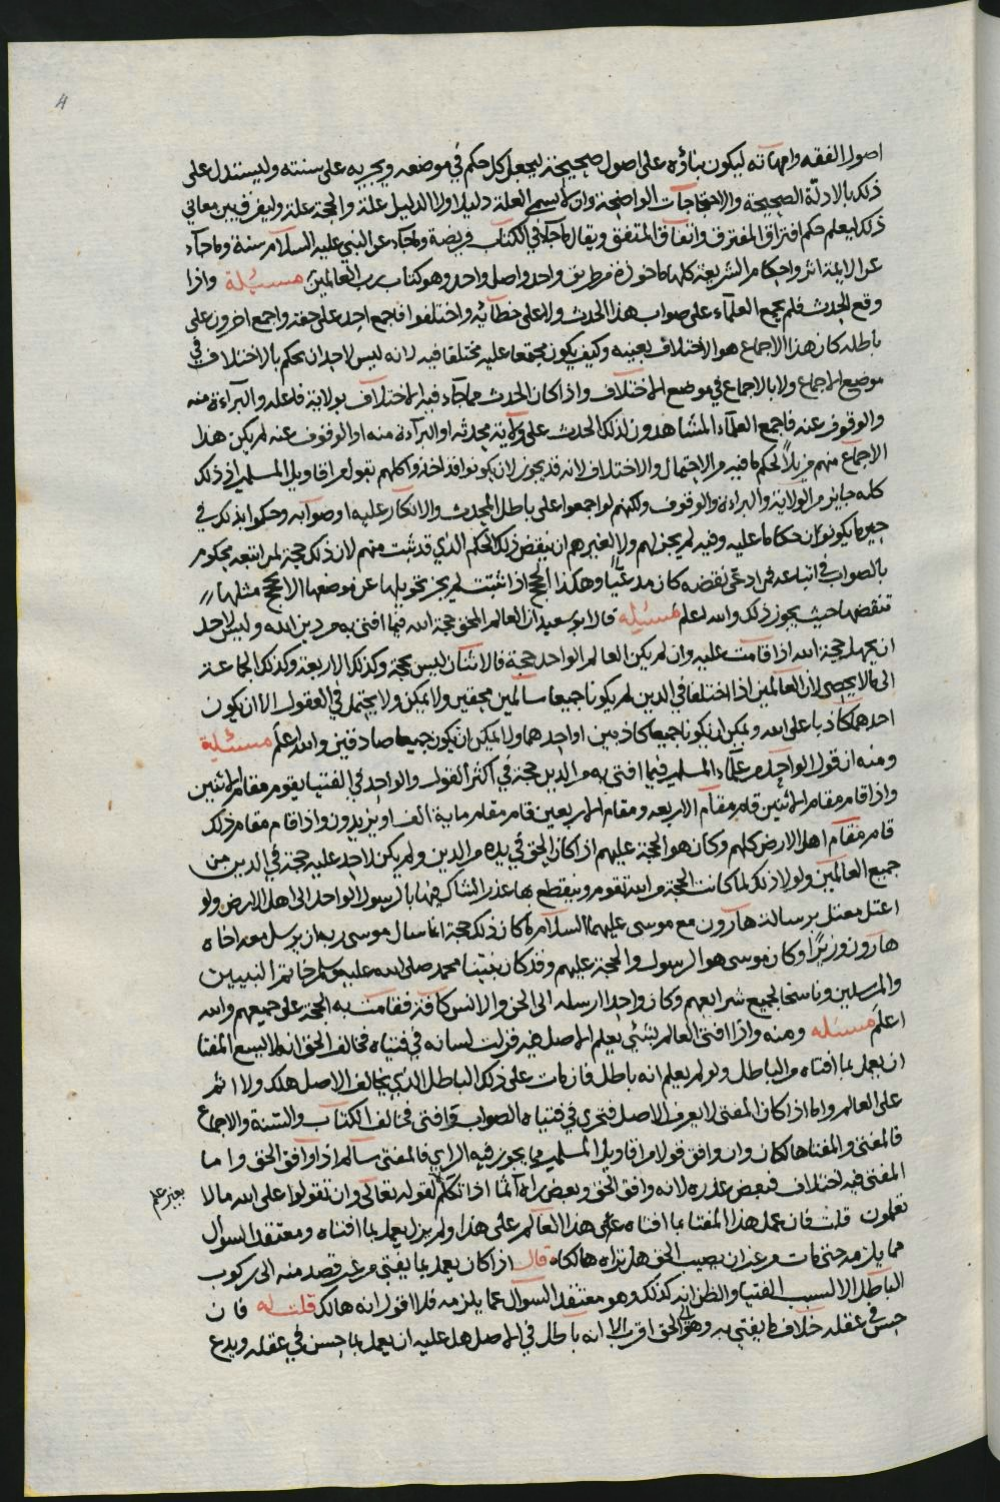 اصول الفقه وامهاته ليكون بناؤه على اصول صحيحة ليجعل كل حكم في موضعه ويجريه على سنته وليستدل على
ذلك بالادلة الصحيحة والاحتجاجات الواضحة وان لا يسمي العلة دليلا ولا الدليل علة والحجة علة وليفرق بين معاني
ذلك ليعلم حكم افتراق المفترق واتفاق المتفق ويقال لما جآء في الكتاب فريضة ولما جآء عن النبي عليه السلام سنة ولما جآء
عن الايمة اثر واحكام الشريعة كلها ماخوذة من طريق واحد واصل واحد وهو كتاب رب العالمين مسئلة واذا
وقع الحدث فلم يجمع العلمآء على صواب هذا الحدث ولا على خطائه واختلفوا فاجمع احد على حقه واجمع اخرون على
باطله كان هذا الاجماع هو الاختلاف بعينه وكيف يكون مجتمعا عليه مختلفا فيه لانه ليس لاحد ان يحكم بالاختلاف في
موضع الاجماع ولا بالاجماع في موضع الاختلاف واذا كان الحدث مما جآء فيه الاختلاف بولاية فاعله والبرآءة منه
والوقوف عنه فاجمع العلمآء المشاهدون لذلك الحدث على ولاية محدثه او البرآءة منه او الوقوف عنه لم يكن هذا
الاجماع منهم مزيلاً لحكم ما فيه من الاحتمال والاختلاف لانه قد يجوز لان يكونوا قد اخذوا كلهم بقول من اقاويل المسلمين اذ ذلك
كله جايز من الولاية والبراءة والوقوف ولكنهم لو اجمعوا على باطل المحدث والانكار عليه او صوابه وحكموا بذلك في
حين ما يكونون حكاما عليه وفيه لم يجز لهم ولا لغيرهم ان ينقض ذلك الحكم الذي قد ثبت منهم لان ذلك حجة لمن اتبعه محكوم
بالصواب في اتباعه فمن ادعى نقضه كان مدعيا وهكذا الحجج اذا ثبتت لم يجز تحويلها عن موضعها الا بحجج مثلها
تنقضها حيث يجوز ذلك والله اعلم مسئله قال ابو سعيد ان العالم المحق حجة الله فيما افتى به من دين الله وليس لاحد
ان يجهل حجة الله اذا قامت عليه وان لم يكن العالم الواحد حجة فالاثنان ليس بحجة وكذلك الاربعة وكذلك الجماعة
الى ما لا يحصى لان العالمين اذا اختلفا في الدين لم يكونا جميعا سالمين محقين ولا يمكن ولا يحتمل في العقول الا ان يكون
احدهما كاذبا على الله ويمكن ان يكونا جميعا كاذبين او احدهما ولا يمكن ان يكون جميعا صادقين والله اعلم مسئلة
ومنه ان قول الواحد من علمآء المسلمين فيما افتى به من الدين حجة في اكثر القول والواحد في الفتيا يقوم مقام الاثنين
واذا قام مقام الاثنين قام مقام الاربعه ومقام الاربعين قام مقام ماية الف او يزيدون واذا قام مقام ذلك
قام مقام اهل الارض كلهم وكان هو الحجة عليهم اذا كان الحق في يده من الدين ولم يكن لاحد عليه حجة في الدين من
جميع العالمين ولولا ذلك لما كانت الحجة من الله تقوم وينقطع بها عذر الشاك فيها بالرسول الواحد الى اهل الارض ولو
اعتل معتل برسالة هارون مع موسى عليهما السلام ما كان ذلك حجة انما سال موسى ربه ان يرسل معه اخاه
هارون وزيرًا وكان موسى هو الرسول والحجة عليهم وقد كان نبينا محمد صلى الله عليه وسلم خاتم النبيين
والمرسلين وناسخا لجميع شرائعهم وكان واحدا ارسله الى الجن والانس كافة فقامت به الحجة على جميعهم والله
اعلم مسئله ومنه واذا افتى العالم بشيء يعلم الاصل فيه فزلت لسانه في فتياه فخالف الحق انه لا يسع المفتا
ان يعمل بما افتاه من الباطل ولو لم يعلم انه باطل فان مات على ذلك الباطل الذي يخالف الاصل هلك ولا اثم
على العالم واما اذا كان المفتى لا يعرف الاصل فتحرى في فتياه الصواب وافتى فخالف الكتاب والسنة والاجماع
فالمفتى والمفتا هالكان وان وافق قولا من اقاويل المسلمين مما يجوز فيه الراي فالمفتى سالم اذا وافق الحق واما
المفتى فيه اختلاف فبعض عذره لانه وافق الحق وبعض راه آثما اذا تكلم لقوله تعالى وان تقولوا على الله مالا
بغير علم
تعلمون قلت فان عمل هذا المفتا بما افتاه على هذا العالم على هذا ولم يزل يعمل بما افتاه ومعتقد السؤال
مما يلزمه حتى مات من غير ان يصيب الحق هل تراه هالكا قال اذا كان يعمل بما يفتى من غير قصد منه الى ركوب
الباطل الا لسبب الفتيا والظن انه كذلك وهو معتقد السؤال عما يلزمه فلا اقول انه هالك قلت له فان
حسن في عقله خلاف ما يفتي به وهو الى الحق اقرب الا انه باطل في الاصل هل عليه ان يعمل بما حسن في عقله ويدع